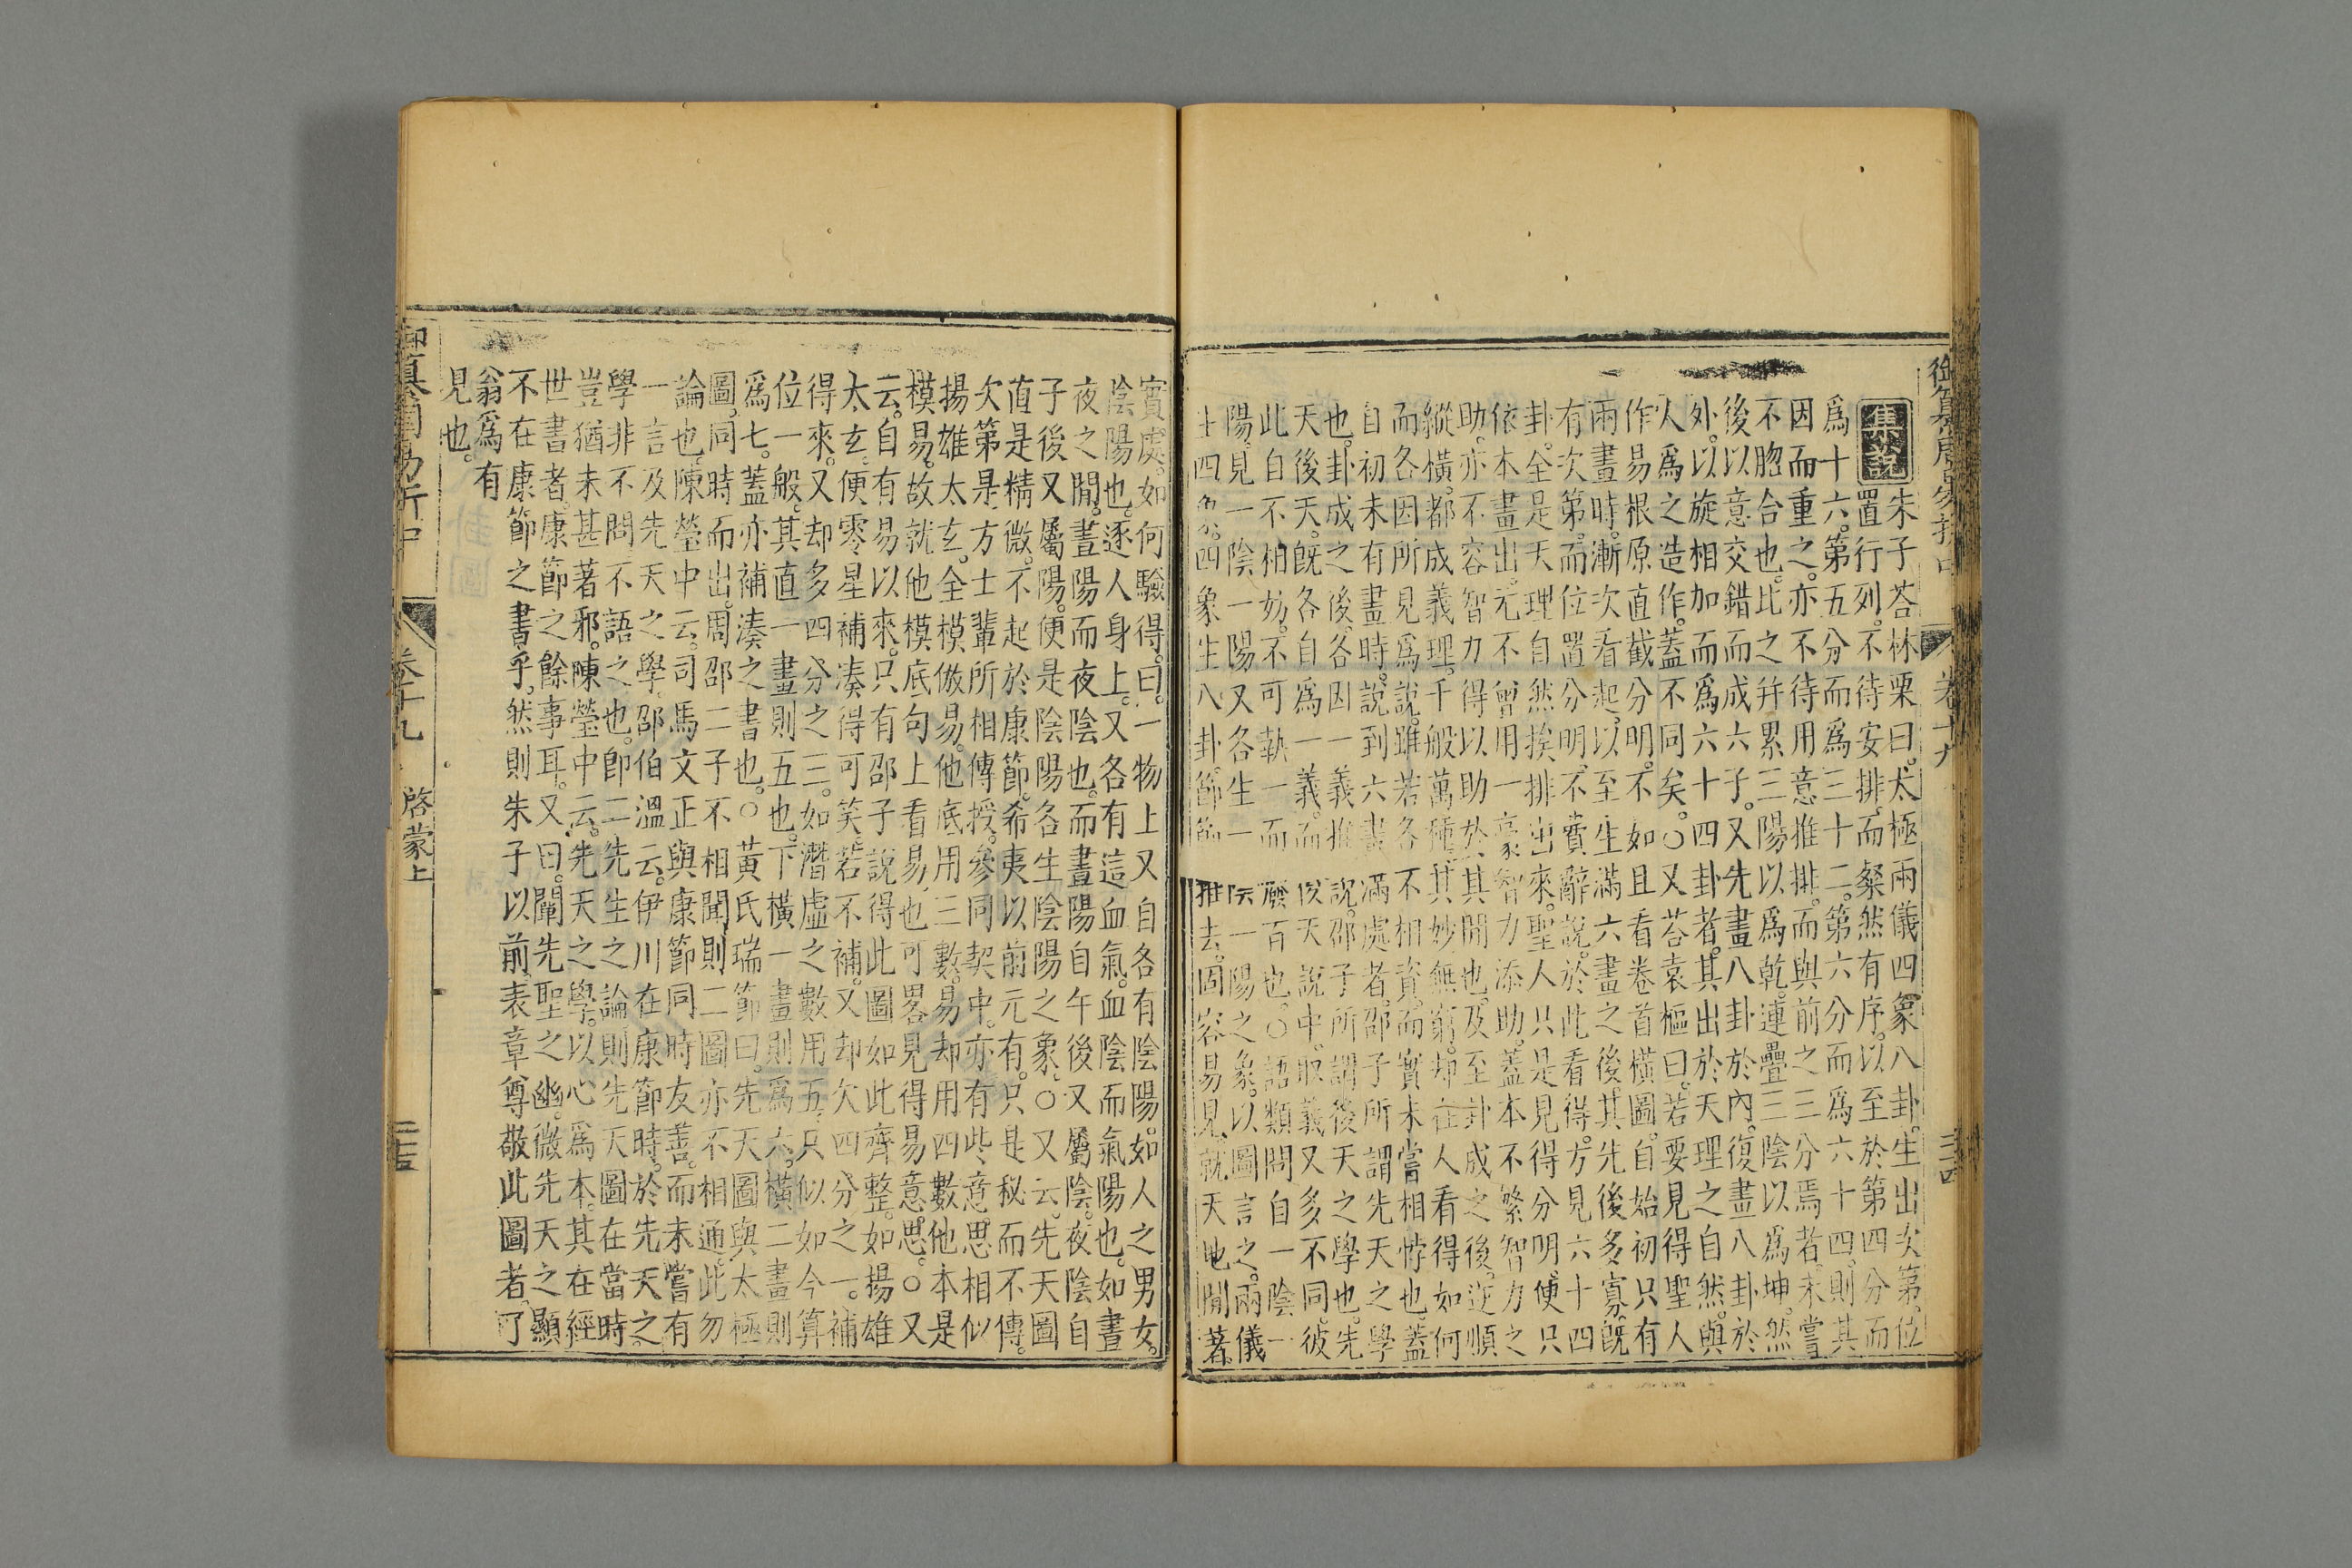 御纂周易折中 卷十九 三四
集說 朱子荅林栗曰。太極兩儀四象八卦。生出次第。位
置行列。不待安排。而粲然有序。以至於第四分而
爲十六。第五分而爲三十二。第六分而爲六十四。則其
因而重之。亦不待用意推排。而與前之三分焉者。未嘗
不脗合也。比之并累三陽以爲乾。連疊三陰以爲坤。然
後以意交錯而成六子。又先畫八卦於內。復畫八卦於
外。以旋相加而爲六十四卦者。其出於天理之自然。與
人爲之造作。蓋不同矣。○又荅袁樞曰。若要見得聖人
作易根原直截分明。不如且看卷首橫圖。自始初只有
兩畫時。漸次看起。以至生滿六畫之後。其先後多寡。既
有次第。而位置分明。不費辭說。於此看得。方見六十四
卦。全是天理自然挨排出來。聖人只是見得分明。便只
依本畫出。元不曾用一豪智力添助。蓋本不繁智力之
助。亦不容智力得以助於其閒也。及至卦成之後。逆順
縱橫。都成義理。千般萬種。其妙無窮。却在人看得如何
而各因所見爲說。雖若各不相資。而實未嘗相悖也。蓋
自初未有畫時。說到六畫滿處者。邵子所謂先天之學
也。卦成之後。各因一義推說。邵子所謂後天之學也。先
天後天。既各自爲一義。而後天說中。取義又多不同。彼
此自不相妨。不可執一而廢百也。○語類問自一陰一
陽。見一陰一陽又各生一陰一陽之象。以圖言之。兩儀
生四象。四象生八卦。節節推去。固容易見。就天地閒著
實處。如何驗得。曰。一物上又自各有陰陽。如人之男女。
陰陽也。逐人身上。又各有這血氣。血陰而氣陽也。如晝
夜之閒。晝陽而夜陰也。而晝陽自午後又屬陰。夜陰自
子後又屬陽。便是陰陽各生陰陽之象。○又云。先天圖
直是精微。不起於康節。希夷以前元有。只是秘而不傳。
次第是方士輩所相傳授。參同契中。亦有些意思相似。
揚雄太玄。全模倣易。他底用三數。易却用四數。他本是
模易。故就他模底句上看易。也可畧見得易意思。○又
云。自有易以來。只有邵子說得此圖如此齊整。如揚雄
太玄。便零星補湊得可笑。若不補。又却欠四分之一。補
得來。又却多四分之三。如潛虛之數用五。只似如今算
位一般。其直一畫則五也。下橫一畫則爲六。橫二畫則
爲七。蓋亦補湊之書也。○黃氏瑞節曰。先天圖與太極
圖。同時而出。周邵二子不相聞。則二圖亦不相通。此勿
論也。陳瑩中云。司馬文正與康節同時友善。而未嘗有
一言及先天之學。邵伯溫云。伊川在康節時。於先天之
學。非不問不語之也。卽二先生之論。則先天圖在當時
豈猶未甚著邪。陳瑩中云。先天之學。以心爲本。其在經
世書者。康節之餘事耳。又曰。闡先聖之幽。微先天之顯
不在康節之書乎。然則朱子以前。表章尊敬此圖者。了
翁爲有
見也。
御纂周易折中 卷十九 啓蒙上